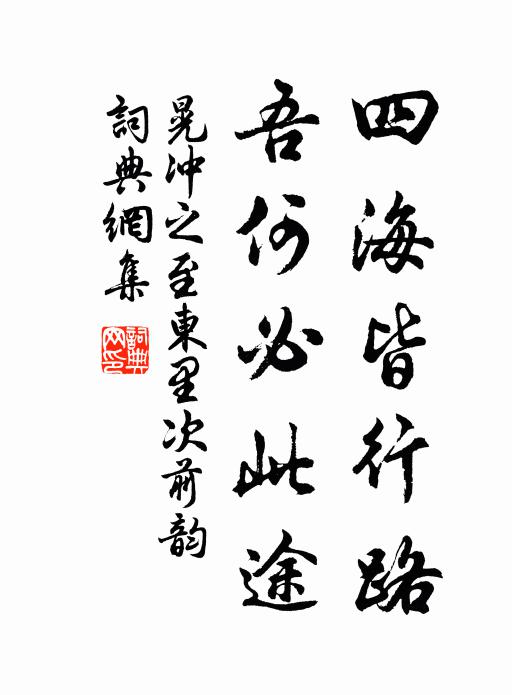 四海皆行路
吾何必此途
晁冲之至東里次前韵
詞典網集
詞典
网印